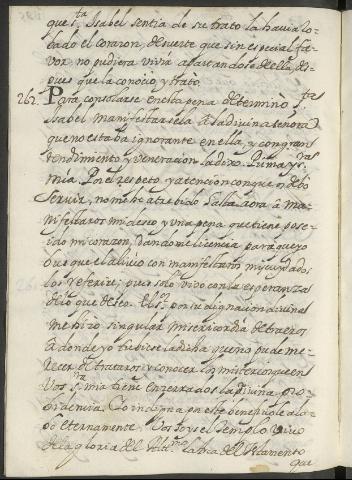 que S.ta Isabel sentia de su trato la havia ro-
bado el corazon, de suerte que sin especial fa-
vor no pudiera vivir apartandose de ella, des-
pues que la conocio y trato.
262. Para consolarse en esta pena determinò S.ta
Isabel manifestarsela à la divina señora
que no estaba ignorante en ella, y con gran
rendimiento y veneracion la dixo. Prima y s.ra
mia. Por el respeto y atencion con que os debo
servir, no me he atrebido hasta aora à ma-
nifestaros mi deseo y una pena que tiene pose-
ido mi corazon, dandome licencia para que yo
busque el alivio con manifestaros mi cuydado
los referirè; pues solo vivo con la esperanza
de lo que deseo. El s.r por su dignacion divina
me hizo singular misericordia de traeros
à donde yo tubiese la dicha que no pude me-
recer de trataros y conocer los misterios que en
Vos s.ra mia tiene enzerrados la divina pro-
videncia. Yo indigna por este beneficio le ala-
bo eternamente. Vos soys el templo vivo
de la gloria del Altis.mo la Arca del testamento
que